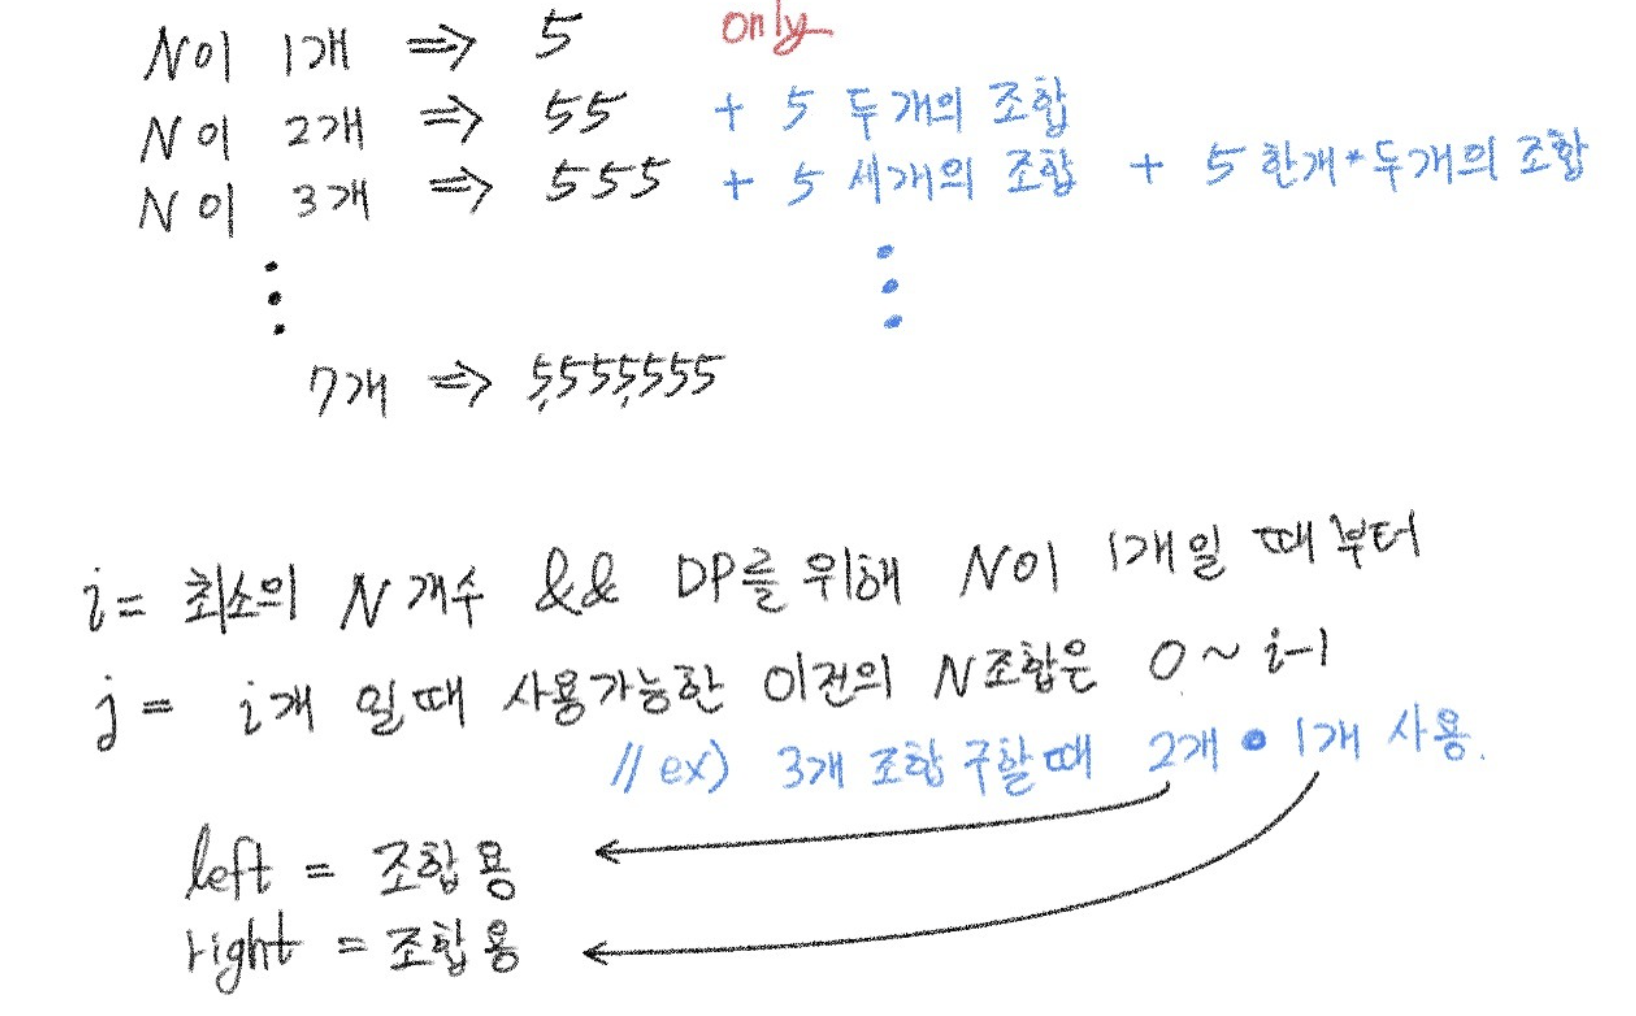 N이 1개 ⇒ 5 only
N이 2개 ⇒ 55 + 5 두개의 조합
N이 3개 ⇒ 555 + 5 세개의 조합 + 5 한개*두개의 조합
7개 ⇒ 5,555,555
i = 최소의 N 개수 && DP를 위해 N이 1개일 때부터
j = i개 일때 사용가능한 이전의 N조합은 0 ~ i-1
// ex) 3개 조합 구할때 2개 • 1개 사용.
left = 조합용
right = 조합용